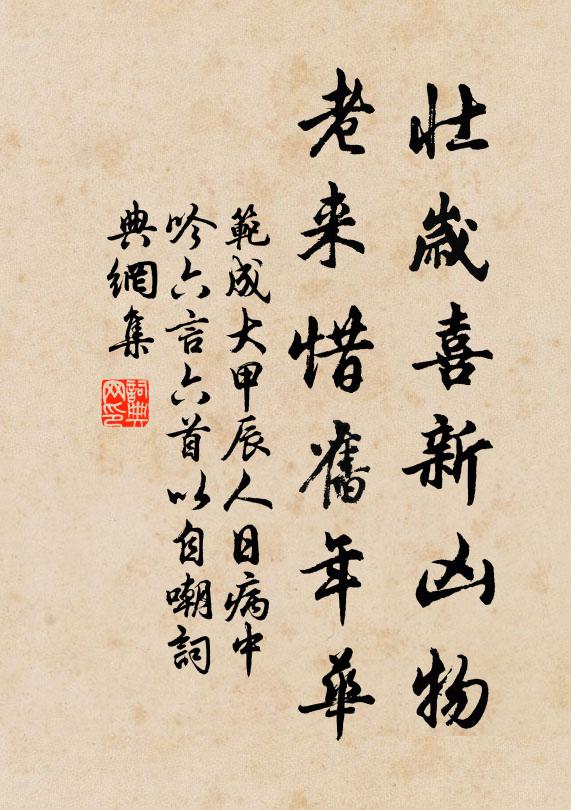 壮歲喜新凶物
老来惜舊年華
範成大甲辰人日病中
吟六言六首以自嘲詞
典網集
詞典网印